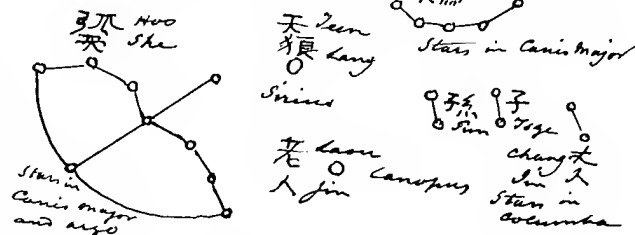 弧 Hoo
She
Stars in
Canis Major
and Argo
天 Teen
狼 Lang
Sirius
老 Laou
人 Jin
Canopus
Stars in Canis Major
孫 Sun
子 Tsze
Chang 丈
Jin 人
Stars in
Columba